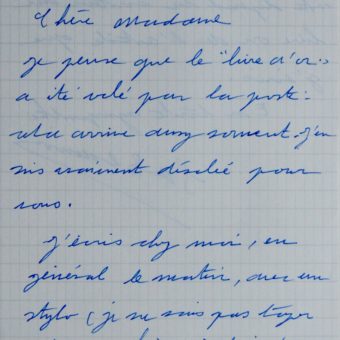 Chère Madame
je pense que le "livre d'or"
a été volé par la poste :
cela arrive assez souvent. J'en
suis vraiment désolée pour
vous.
J'écris chez moi, en
général le matin, avec un
stylo (je ne sais pas taper